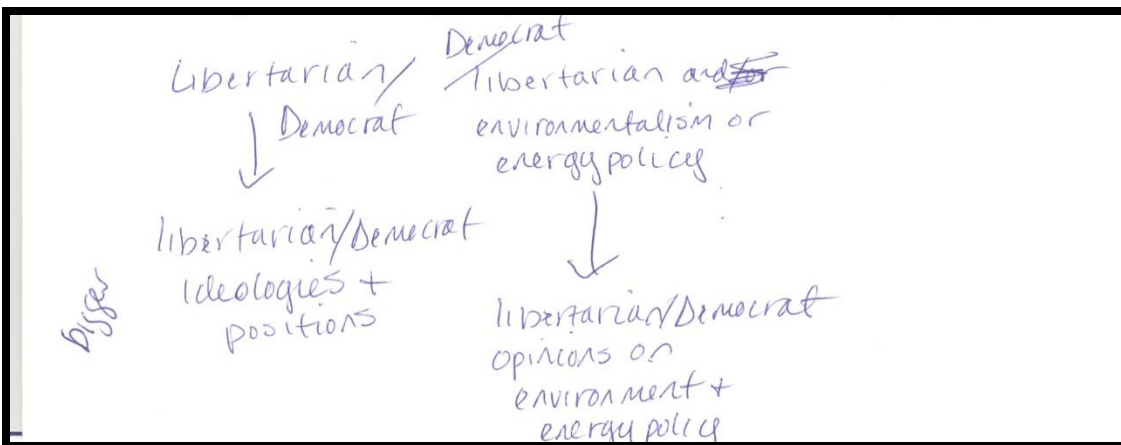 Libertarian/
Democrat
libertarian/Democrat
ideologies +
positions
bigger
Democrat/
libertarian and
environmentalism or
energy policy
libertarian/Democrat
opinions on
environment +
energy policy